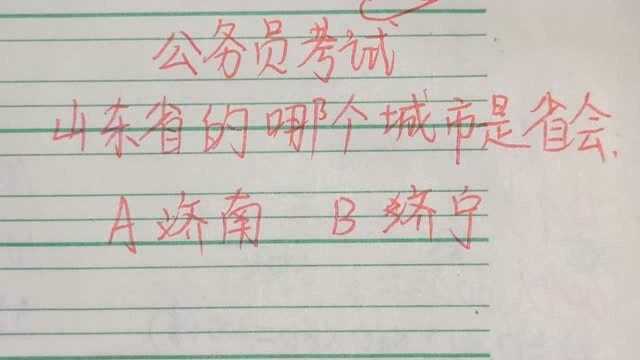 公务员考试
山东省的哪个城市是省会.
A 济南 B 济宁